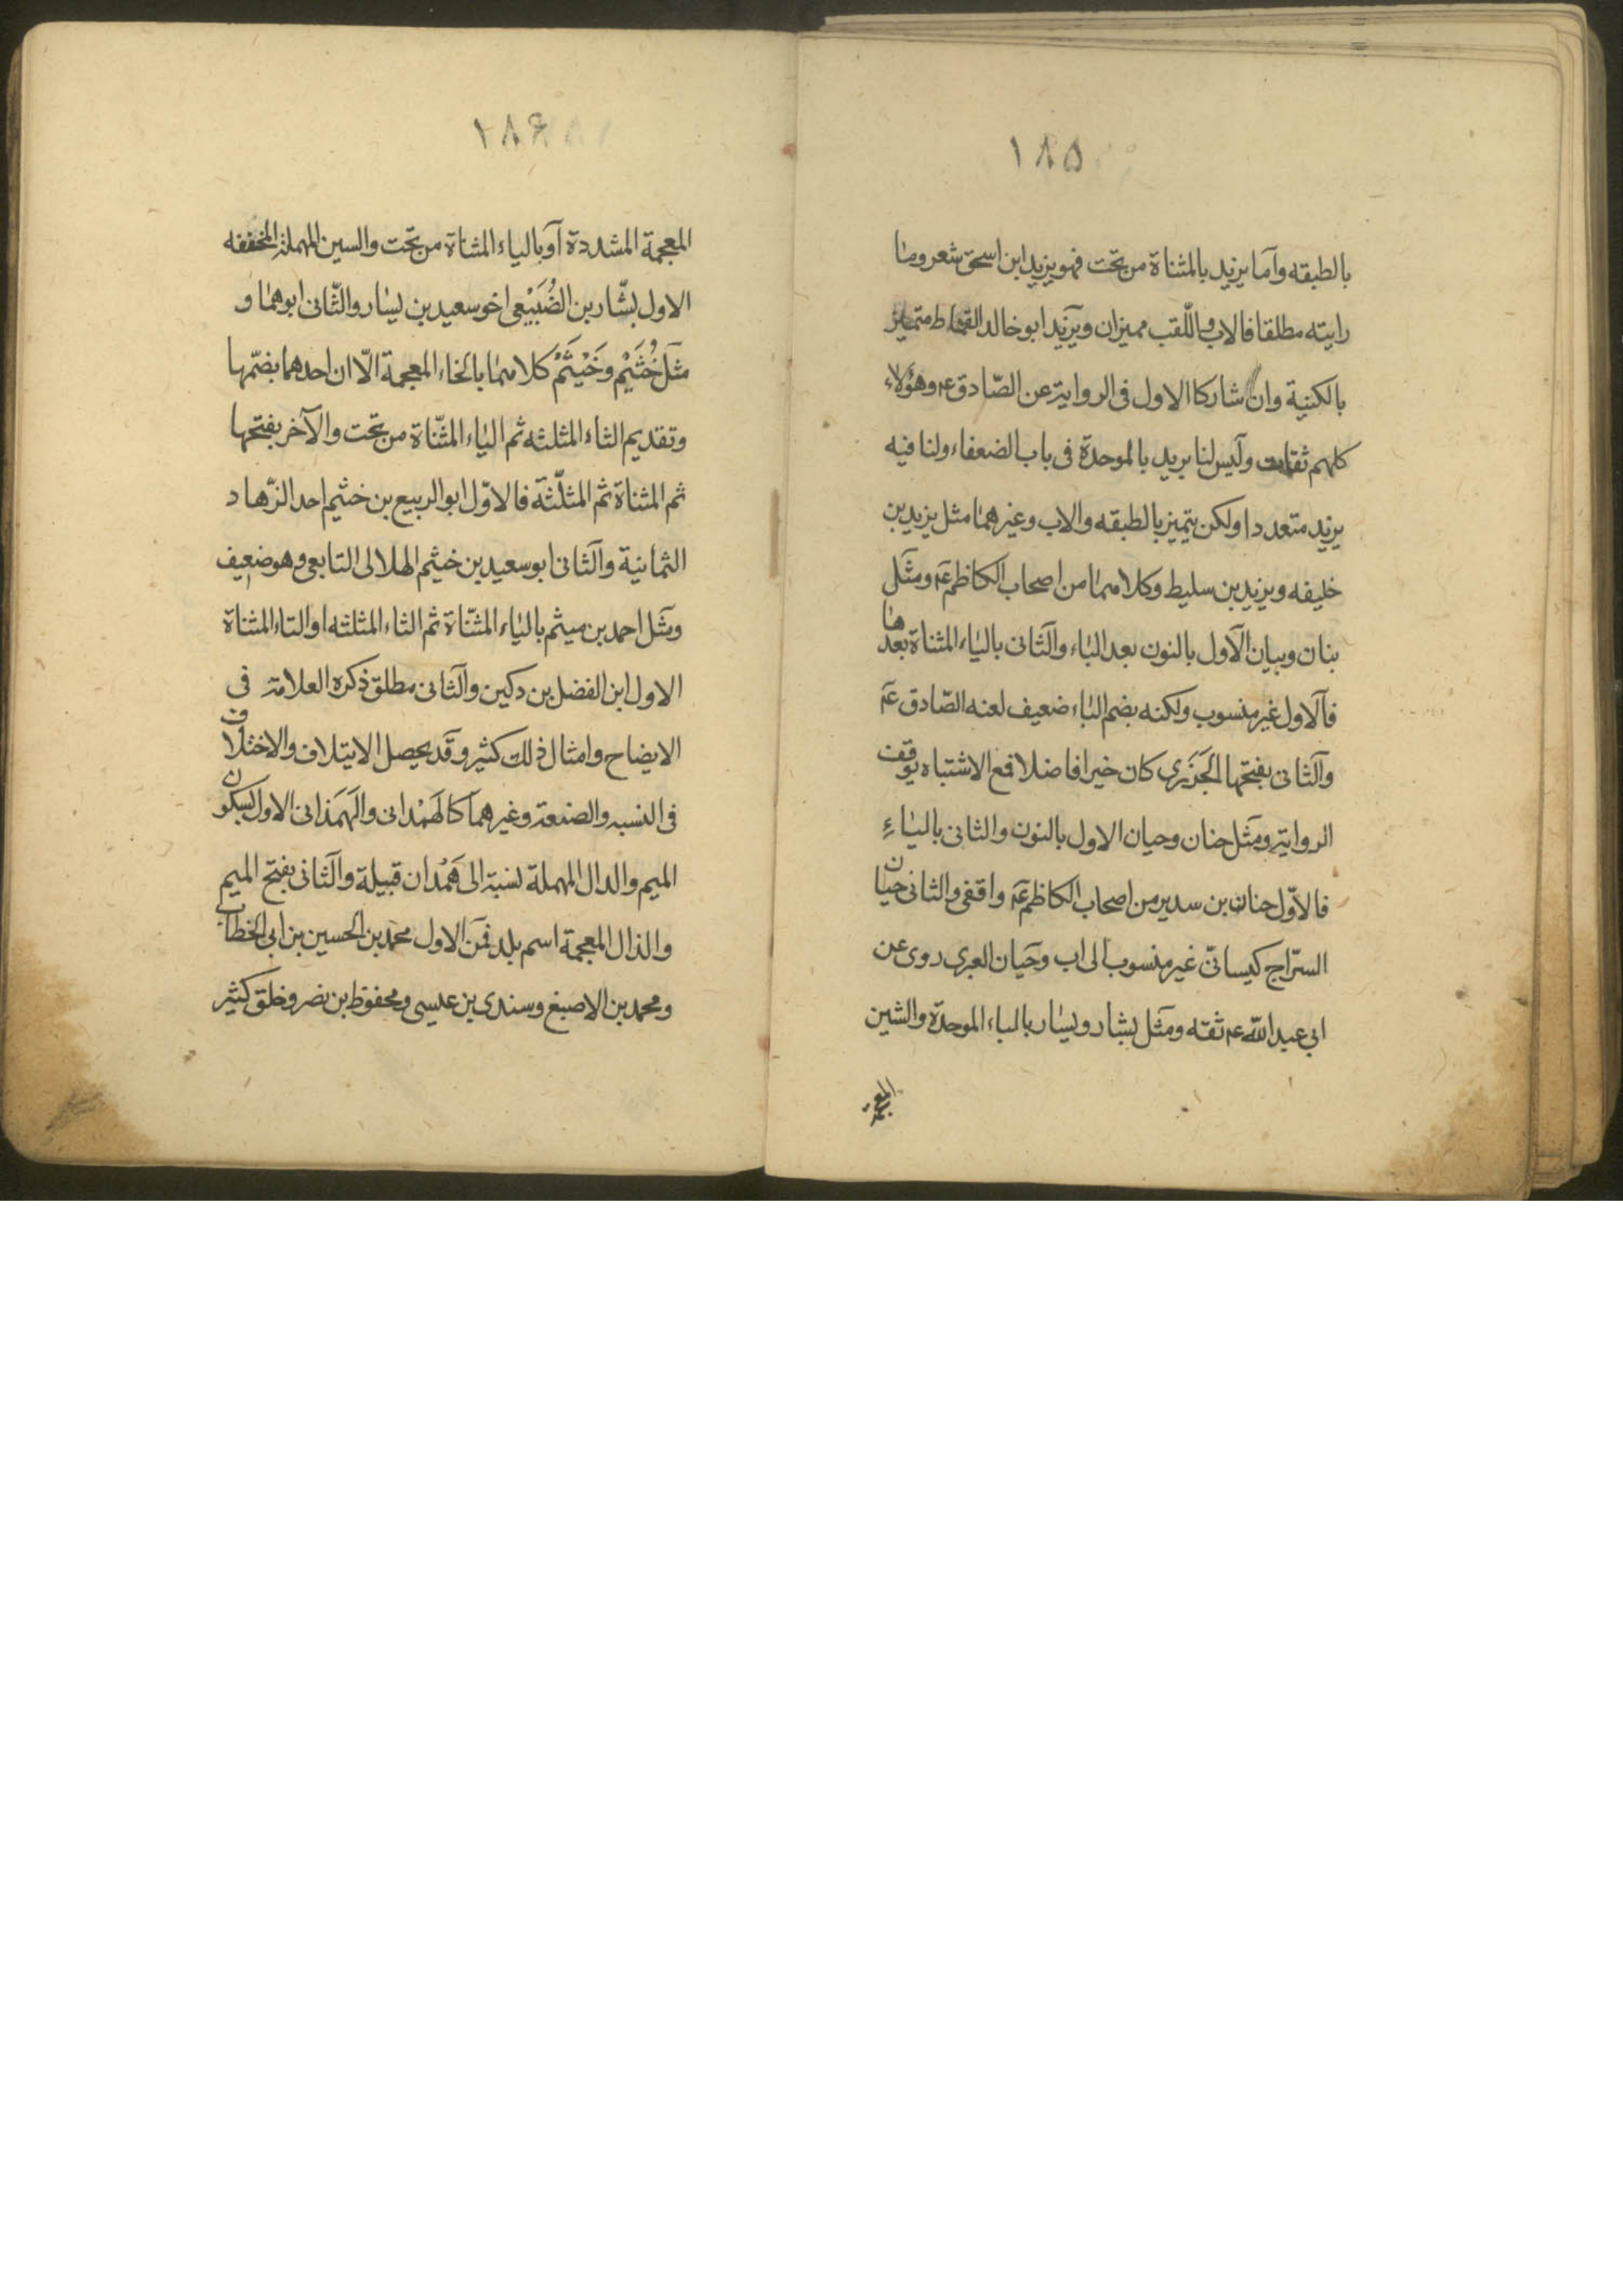 ١٨٥
بالطبقه وآما يزيد بالمثناة من تحت فهو يزيد ابن اسحق شعر وما
رايته مطلقا فالاب واللّقب مميزان ويزيد ابو خالد القماط متميز
بالكنية وان شاركا الاول فى الرواية عن الصّادق ع وهؤلاء
كلهم ثقات وليس لنا بريد بالموحدة فى باب الضعفاء ولنا فيه
يزيد متعددا ولكن يتميز بالطبقه والاب وغيرهما مثل يزيد بن
خليفه ويزيد بن سليط وكلاهما من اصحاب الكاظم ع ومثل
بنان وبيان الآول بالنون بعد الباء والثانى بالياء المثناة بعدها
فالاول غير منسوب ولكنه بضم الباء ضعيف لعنه الصّادق ع
والثانى بفتحها الجَزَرى كان خيرا فاضلا فمع الاشتباه توقف
الرواية ومثل حنان وحيان الاول بالنون والثانى بالياء
فالاوّل حنان بن سدير من اصحاب الكاظم ع واقفى والثانى حيان
السرّاج كيسانىّ غير منسوب الى اب وحَيان العبرى روى عن
ابى عبد اللّه ع ثقه ومثل بشار ويسار بالباء الموحدة والشين
المعجمة
١٨۶
المعجمة المشددة آو بالياء المثناة من تحت والسين المهملة المخففه
الاول بشّار بن الضُبَيْعى اخو سعيد بن يسار والثّانى ابوهما و
مثل خُثَيْم وخَيْثَمْ كلاهما بالخاء المعجمة الّا ان احدهما بضمّها
وتقديم الثاء المثلثه ثم الياء المثنّاة من تحت والآخر بفتحها
ثم المثناة ثم المثلّثة فالاوّل ابو الربيع بن خثيم احد الزهّاد
الثمانية والثانى ابو سعيد بن خيثم الهلالى التابعى وهو ضعيف
ومثل احمد بن ميثم بالياء المثنّاة ثم الثاء المثلثه او التاء المثناة
الاول ابن الفضل بن دكين والثانى مطلق ذكره العلامة فى
الايضاح وامثال ذلك كثير وقد يحصل الايتلاف والاختلاف
فى النسبه والصنعة وغيرهما كالهَمْدانى والهَمَذانى الاول بسكون
الميم والدال المهملة نسبة الى هَمْدان قبيلة والثانى بفتح الميم
والذال المعجمة اسم بلد فمن الاول محمد بن الحسين بن ابى الخطاب
ومحمد بن الاصبغ وسندى بن عيسى ومحفوظ بن نصر وخلق كثير